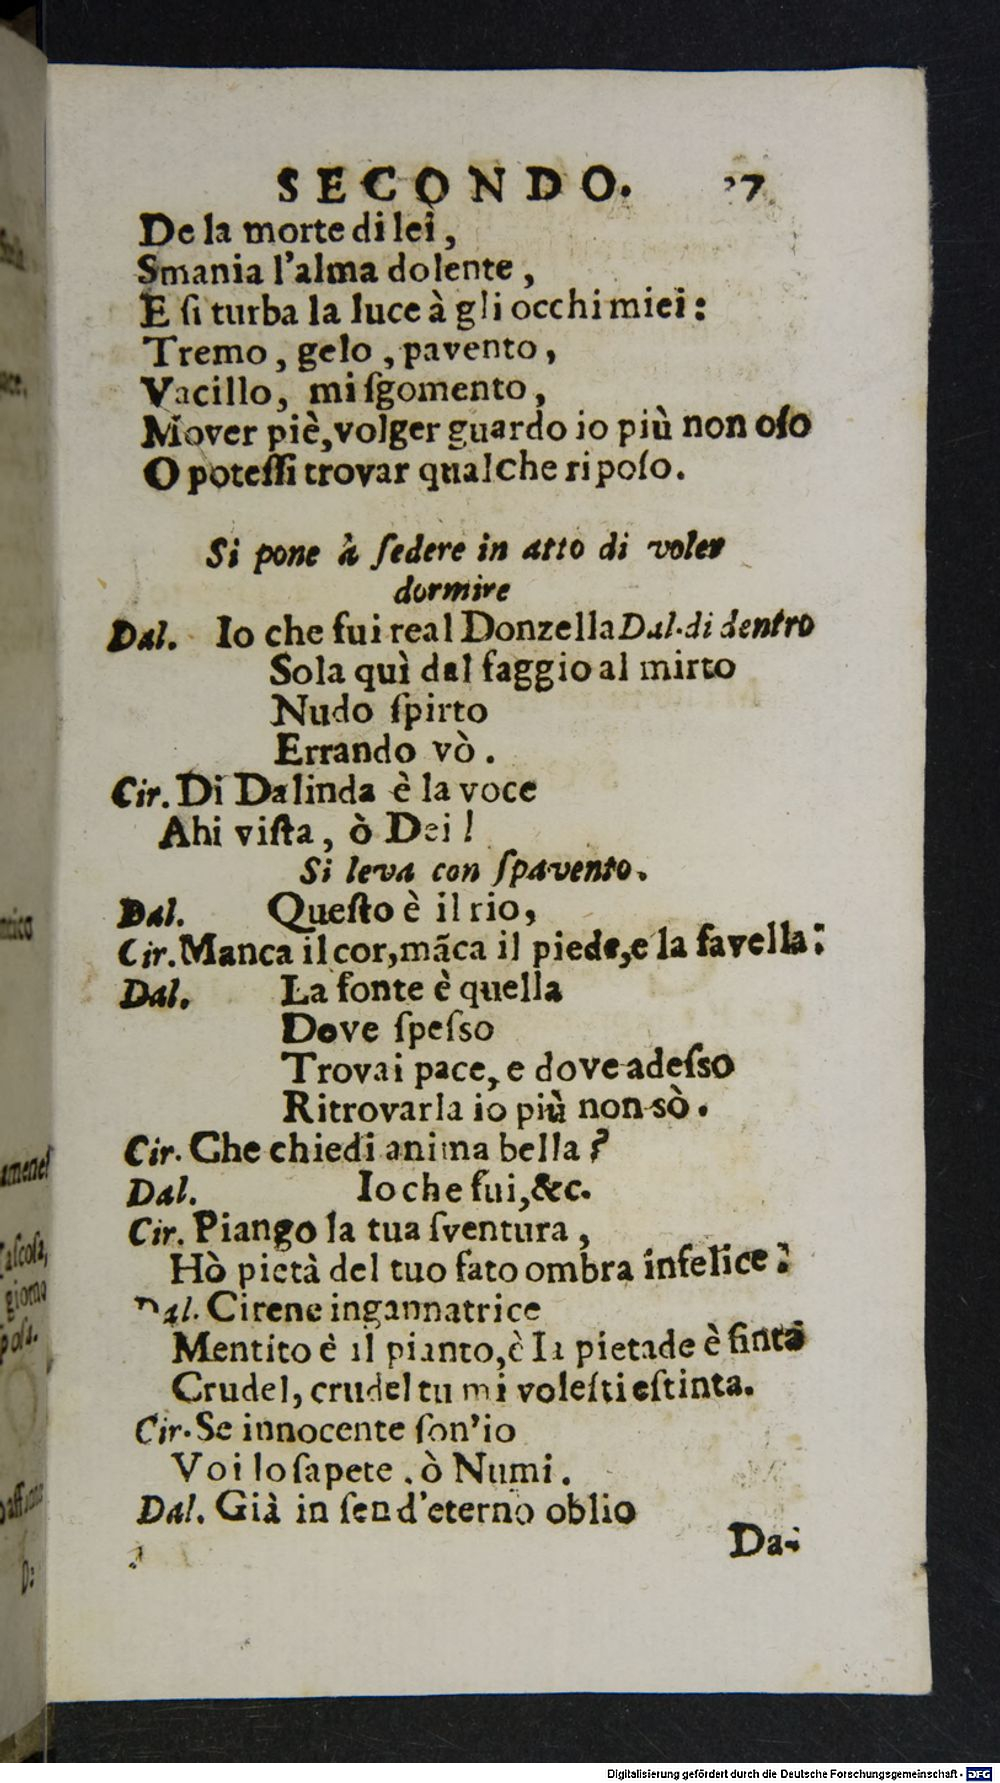 SECONDO. 37
De la morte di lei,
Smania l'alma dolente,
E ſi turba la luce à gli occhi miei:
Tremo, gelo, pavento,
Vacillo, mi ſgomento,
Mover piè, volger guardo io più non oſo
O poteſſi trovar qualche ripoſo.
Si pone à ſedere in atto di voler
dormire
Dal. Io che fui real Donzella Dal. di dentro
Sola quì dal faggio al mirto
Nudo ſpirto
Errando vò.
Cir. Di Dalinda è la voce
Ahi viſta, ò Dei!
Si leva con ſpavento.
Dal. Queſto è il rio,
Cir. Manca il cor, mãca il piede, e la favella:
Dal. La fonte è quella
Dove ſpeſso
Trovai pace, e dove adeſso
Ritrovarla io più non sò.
Cir. Che chiedi anima bella?
Dal. Io che fui, &c.
Cir. Piango la tua ſventura,
Hò pietà del tuo fato ombra infelice:
Dal. Cirene ingannatrice
Mentito è il pianto, è la pietade è finta
Crudel, crudel tu mi voleſti eſtinta.
Cir. Se innocente ſon'io
Voi lo ſapete, ò Numi.
Dal. Già in ſen d'eterno oblio
Da-
Digitalisierung gefördert durch die Deutsche Forschungsgemeinschaft - DFG